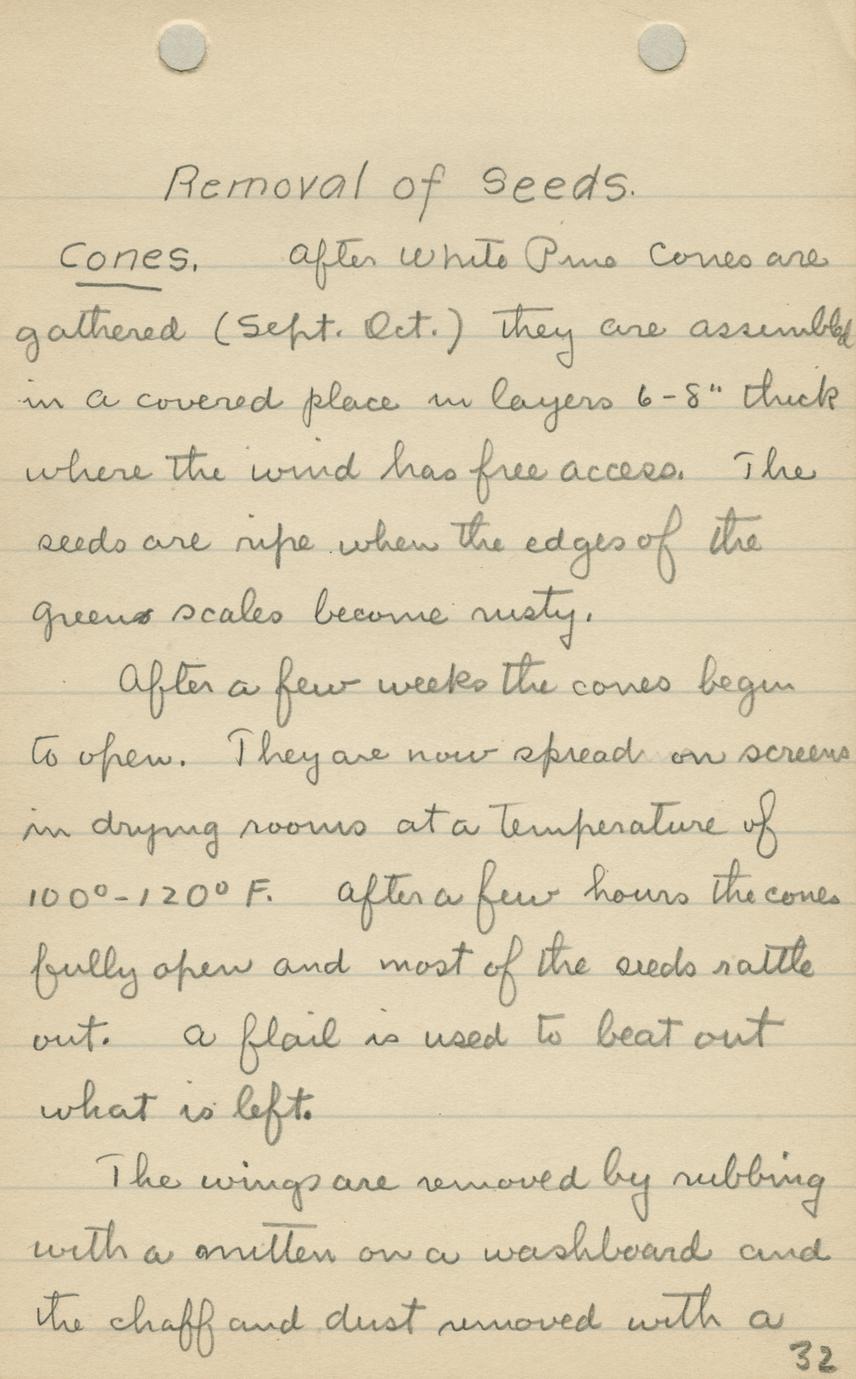 Removal of Seeds.
Cones. After White Pine Cones are
gathered (Sept. Oct.) they are assembled
in a covered place in layers 6-8" thick
where the wind has free access. The
seeds are ripe when the edges of the
green scales become rusty.
After a few weeks the cones begin
to open. They are now spread on screens
in drying rooms at a temperature of
100°-120° F. After a few hours the cones
fully open and most of the seeds rattle
out. A flail is used to beat out
what is left.
The wings are removed by rubbing
with a mitten on a washboard and
the chaff and dust removed with a
32